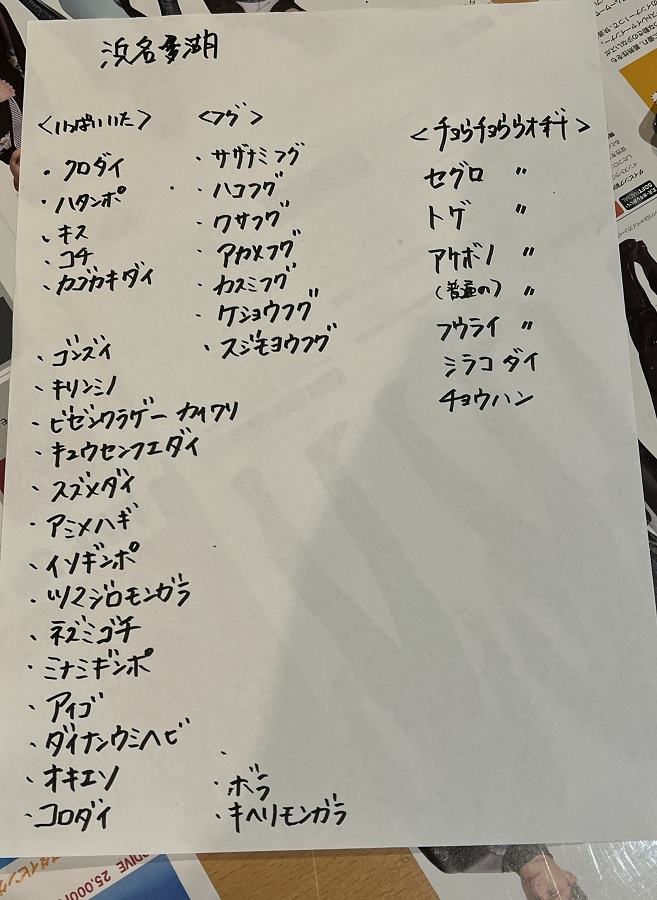 浜名湖
<いっぱいいた>
・クロダイ
・ハタンポ
・キス
・コチ
・カゴカキダイ
・ゴンズイ
・キリンミノ
・ビゼンクラゲー カイワリ
・キュウセンフエダイ
・スズメダイ
・アミメハギ
・イソギンポ
・ツマジロモンガラ
・ネズミゴチ
・ミナミギンポ
・アイゴ
・ダイナンウミヘビ
・オキエソ
・コロダイ
<フグ>
・サザナミフグ
・ハコフグ
・クサフグ
・アカメフグ
・カスミフグ
・ケショウフグ
・スジモヨウフグ
・
・ボラ
・キヘリモンガラ
<チョウチョウウオギナ>
セグロ 〃
トゲ 〃
アケボノ 〃
(普通の) 〃
フウライ 〃
シラコダイ
チョウハン
DIVE 25,000